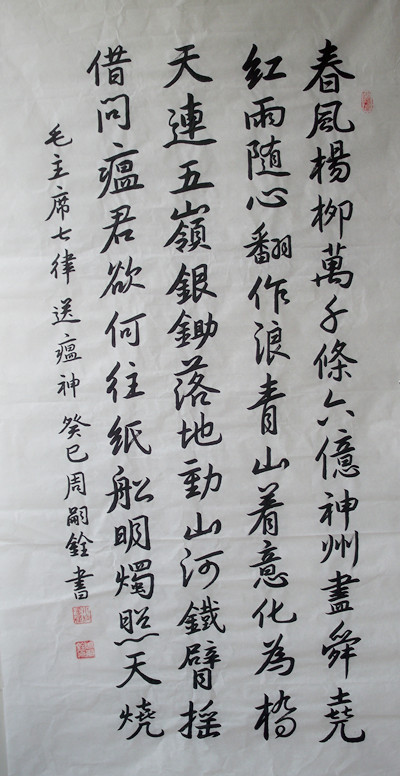 春風楊柳萬千條六億神州盡舜堯
紅雨隨心翻作浪青山着意化為橋
天連五嶺銀鋤落地動山河鐵臂搖
借問瘟君欲何往紙船明燭照天燒
毛主席七律送瘟神癸巳周嗣銓書